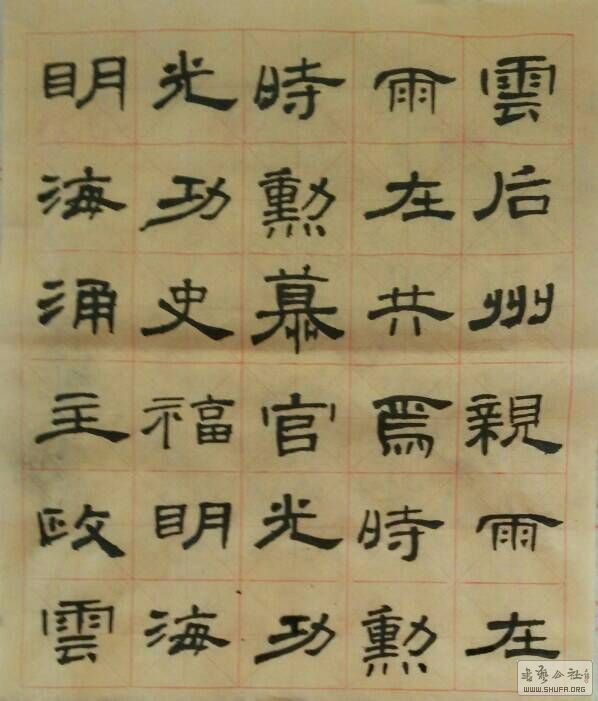 雲后州親雨在
雨在共焉時勳
時勳慕官光功
光功史福明海
明海涌主政雲
书艺公社
WWW.SHUFA.ORG